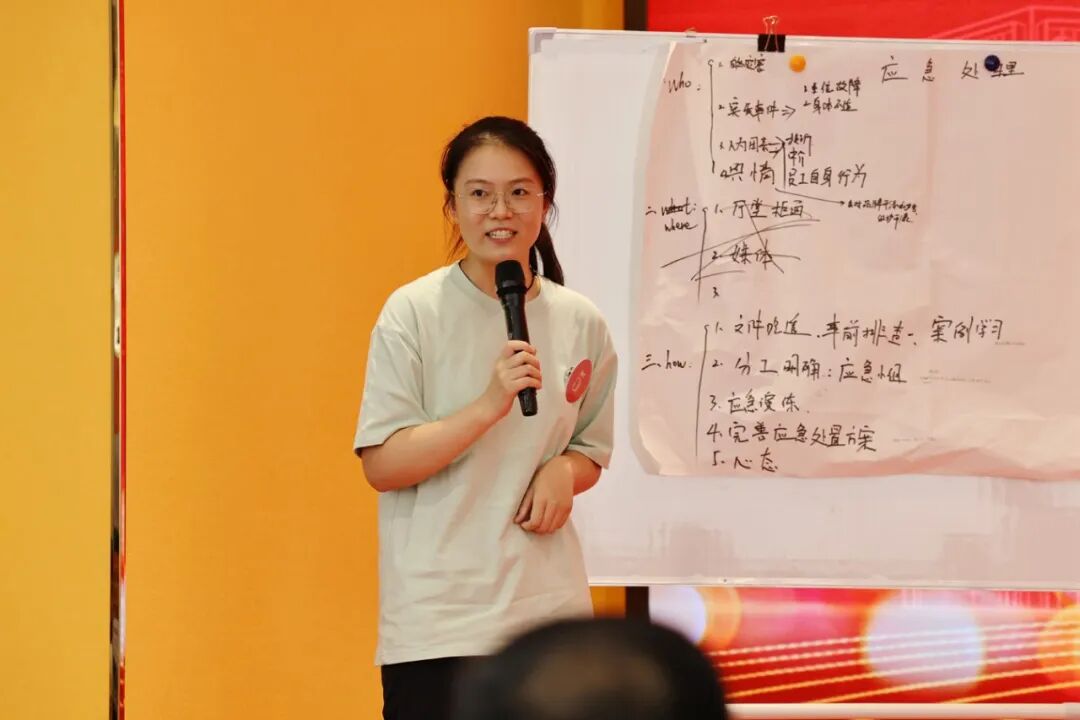 应急处理
一、who:
1.
1.车位故障
2.突发事件 ⇒ 2.身体不适
3.人为因素→投诉
4.舆情
员工自身行为
二、what:
where
1.厅堂柜面
2.媒体
3.
三、how:
1.文件 车前排查、案例学习
2.分工明确:应急小组
3.应急演练.
4.完善应急处置方案
5.心态